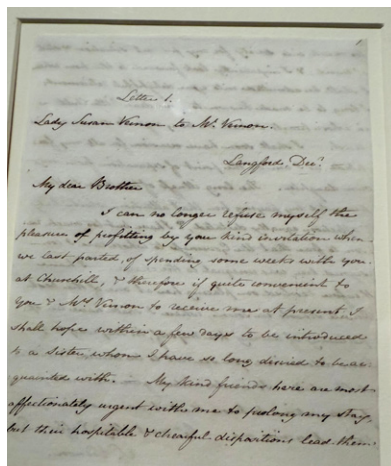 Letter 1.
Lady Susan Vernon to Mr. Vernon.
Langford, Decr.
My dear Brother
I can no longer refuse myself the
pleasure of profitting by your kind invitation when
we last parted, of spending some weeks with you
at Churchill, & therefore if quite convenient to
you & Mrs. Vernon to receive me at present, I
shall hope within a few days to be introduced
to a Sister, whom I have so long desired to be ac-
quainted with. — My kind friends here are most
affectionately urgent with me to prolong my stay,
but their hospitable & chearful dispositions lead them